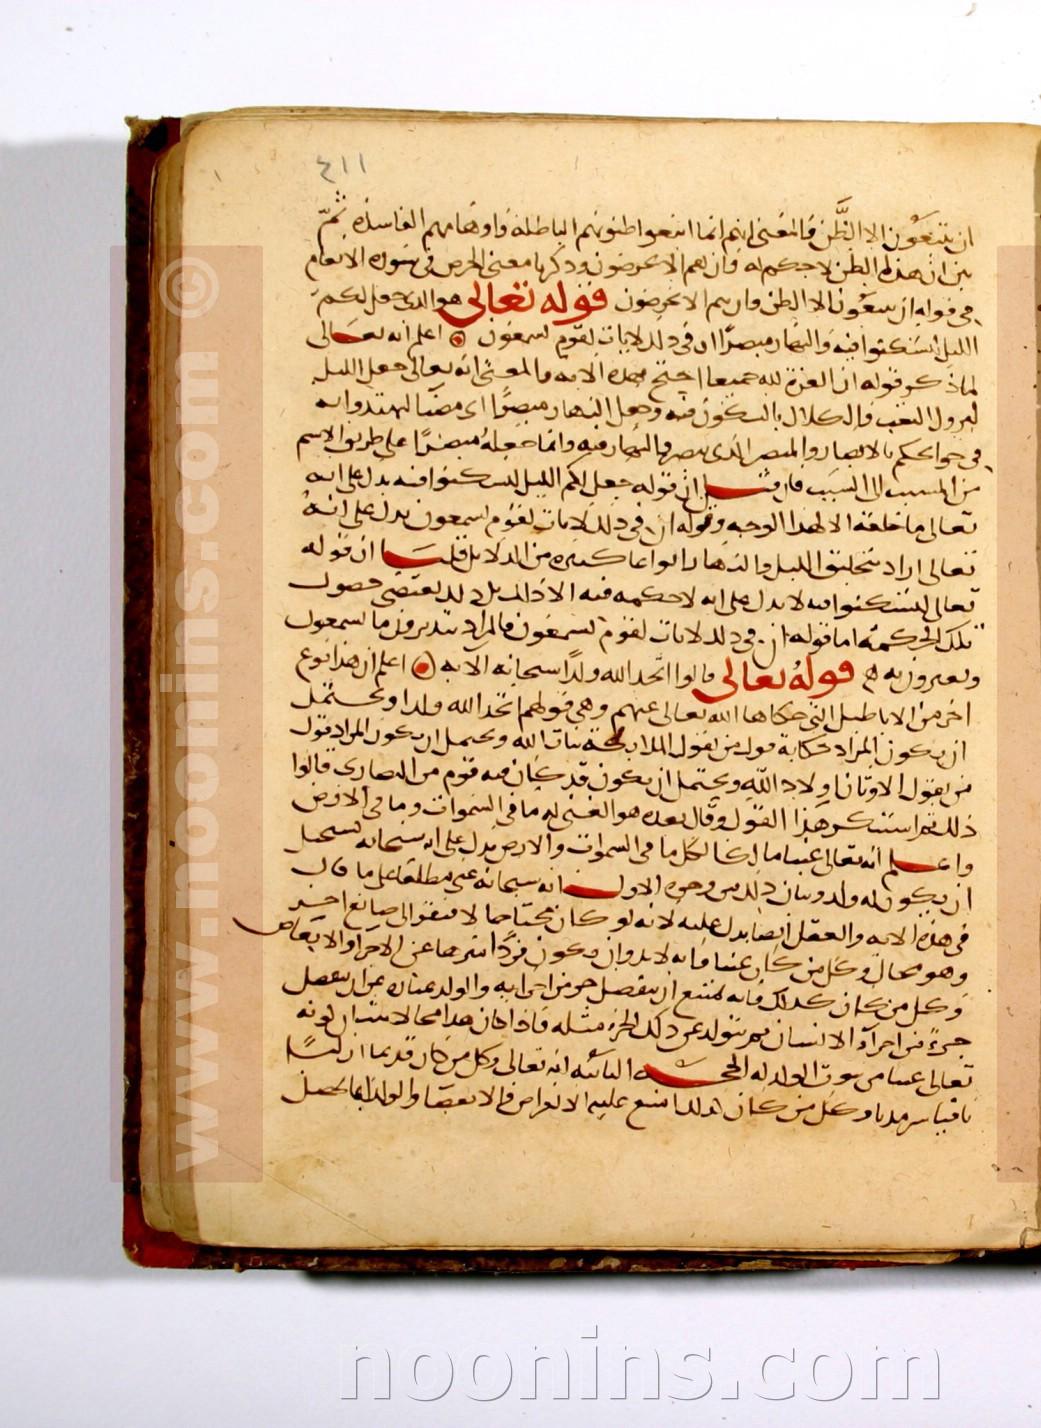 ٤١١
ان يتبعون الا الظن فالمعنى انهم انما اتبعوا ظنونهم الباطلة واوهامهم الفاسدة ثم
بين ان هذا الظن لا حكم له وان هم الا يخرصون وذكرنا معنى الخرص في سورة الانعام
في قوله ان يتبعون الا الظن وان هم الا يخرصون قوله تعالى هو الذي جعل لكم
الليل لتسكنوا فيه والنهار مبصرا ان في ذلك لايات لقوم يسمعون اعلم انه تعالى
لما ذكر قوله ان العزة لله جميعا احتج بهذه الاية والمعنى انه تعالى جعل الليل
ليزول التعب والكلال بالسكون فيه وجعل النهار مبصرا اى مضيا لتهتدوا به
في حوائجكم بالابصار والمبصر الذي يبصر والنهار يبصر فيه وانما جعله مبصرا على طريق الاسم
من المسبب الى السبب فان قيل ان قوله جعل لكم الليل لتسكنوا فيه يدل على انه
تعالى ما خلقه الا لهذا الوجه وقوله ان في ذلك لايات لقوم يسمعون يدل على انه
تعالى اراد بتخليق الليل والنهار انواعا كثيرة من الدلائل قلنا ان قوله
تعالى لتسكنوا فيه لا يدل على انه لا حكمة فيه الا ذلك بل ذلك يقتضي حصول
تلك الحكمة اما قوله ان في ذلك لايات لقوم يسمعون فالمراد يتدبرون ما يسمعون
ويعتبرون به قوله تعالى قالوا اتخذ الله ولدا سبحانه الاية اعلم ان هذا نوع
اخر من الاباطيل التي حكاها الله تعالى عنهم وهي قولهم اتخذ الله ولدا ويحتمل
ان يكون المراد حكاية قول من يقول الملائكة بنات الله ويحتمل ان يكون المراد قول
من يقول الاوثان اولاد الله ويحتمل ان يكون قد كان فيه قوم من النصارى قالوا
ذلك ثم استنكر هذا القول وقال بعده هو الغني له ما في السموات وما في الارض
واعلم انه تعالى غنيا مالكا لكل ما في السموات والارض يدل على انه سبحانه يستحيل
ان يكون له ولد وبيان ذلك من وجوه الاول انه سبحانه غني مطلقا على ما قال
في هذه الاية والعقل ايضا يدل عليه لانه لو كان محتاجا لافتقر الى صانع اخر
وهو محال وكل من كان غنيا فانه لا بد وان يكون فردا منزها عن الاجزاء والابعاض
وكل من كان كذلك فانه يمتنع ان ينفصل جزء من اجزائه والولد عبارة عن ان ينفصل
جزء من اجزاء الانسان ثم يتولد عن ذلك الجزء مثله فاذا كان هذا محالا ثبت ان كونه
تعالى غنيا من ثبوت الولد له الحجة الثانية انه تعالى وكل من كان قديما ازليا
باقيا سرمديا وكل من كان كذلك امتنع عليه الانقراض والانقضا والولد انما يحصل
www.noonins.com ©
noonins.com